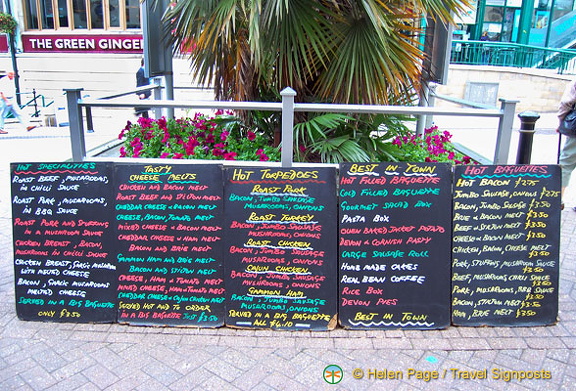 THE GREEN GINGER
HOT SPECIALITIES
ROAST BEEF, MUSHROOMS,
IN CHILLI SAUCE
ROAST PORK, MUSHROOMS, IN
BBQ SAUCE
ROAST PORK AND STUFFING
IN A MUSHROOM SAUCE
CHICKEN BREAST, BACON,
IN CHILLI SAUCE
CHICKEN BREAST, GARLIC MUSHROOMS
WITH MELTED CHEESE
BACON, GARLIC MUSHROOMS
MELTED CHEESE
SERVED IN A BIG BAGUETTE
ONLY £3.50
TASTY
CHEESE MELTS
CHICKEN AND BACON MELT
ROAST BEEF AND STILTON MELT
CHEDDAR CHEESE AND ONION MELT
CHEESE, BACON, TOMATO MELT
MIXED CHEESE AND BACON MELT
CHEDDAR CHEESE AND HAM MELT
BACON AND BRIE MELT
GAMMON HAM AND BRIE MELT
BACON AND STILTON MELT
CHEESE, HAM & TOMATO MELT
MIXED CHEESE, HAM & TOMATO MELT
CHEDDAR CHEESE & CAJUN CHICKEN MELT
SERVED HOT AND TO ORDER
IN A BIG BAGUETTE JUST £3.50
HOT TORPEDOES
ROAST PORK
BACON, JUMBO SAUSAGE
MUSHROOMS, ONIONS
ROAST TURKEY
BACON, JUMBO SAUSAGE
MUSHROOMS, ONIONS
ROAST CHICKEN
BACON, JUMBO SAUSAGE
MUSHROOMS, ONIONS
CAJUN CHICKEN
BACON, JUMBO SAUSAGE
MUSHROOMS, ONIONS
GAMMON HAM
BACON, JUMBO SAUSAGE
MUSHROOMS, ONIONS
SERVED IN A BIG BAGUETTE
ALL £4.10
BEST IN TOWN
HOT FILLED BAGUETTE
COLD FILLED BAGUETTE
GOURMET SALAD BOX
PASTA BOX
OVEN BAKED JACKET POTATO
DEVON & CORNISH PASTY
LARGE SAUSAGE ROLL
HOME MADE CAKES
REAL BEAN COFFEE
RICE BOX
DEVON PIES
BEST IN TOWN
HOT BAGUETTES
HOT BACON £2.75
JUMBO SAUSAGE £2.75
BACON, JUMBO SAUSAGE £3.50
BRIE & BACON MELT £3.50
BEEF & STILTON MELT
£3.50
CHICKEN, BACON CHEESE MELT
£3.50
PORK, STUFFING, MUSHROOM SAUCE
£3.50
BEEF, MUSHROOMS, CHILLI SAUCE
£3.50
PORK, MUSHROOMS, BBQ SAUCE
£3.50
BACON, STILTON MELT £3.50
HAM, BRIE MELT £3.50
© Helen Fex / Travel Signposts